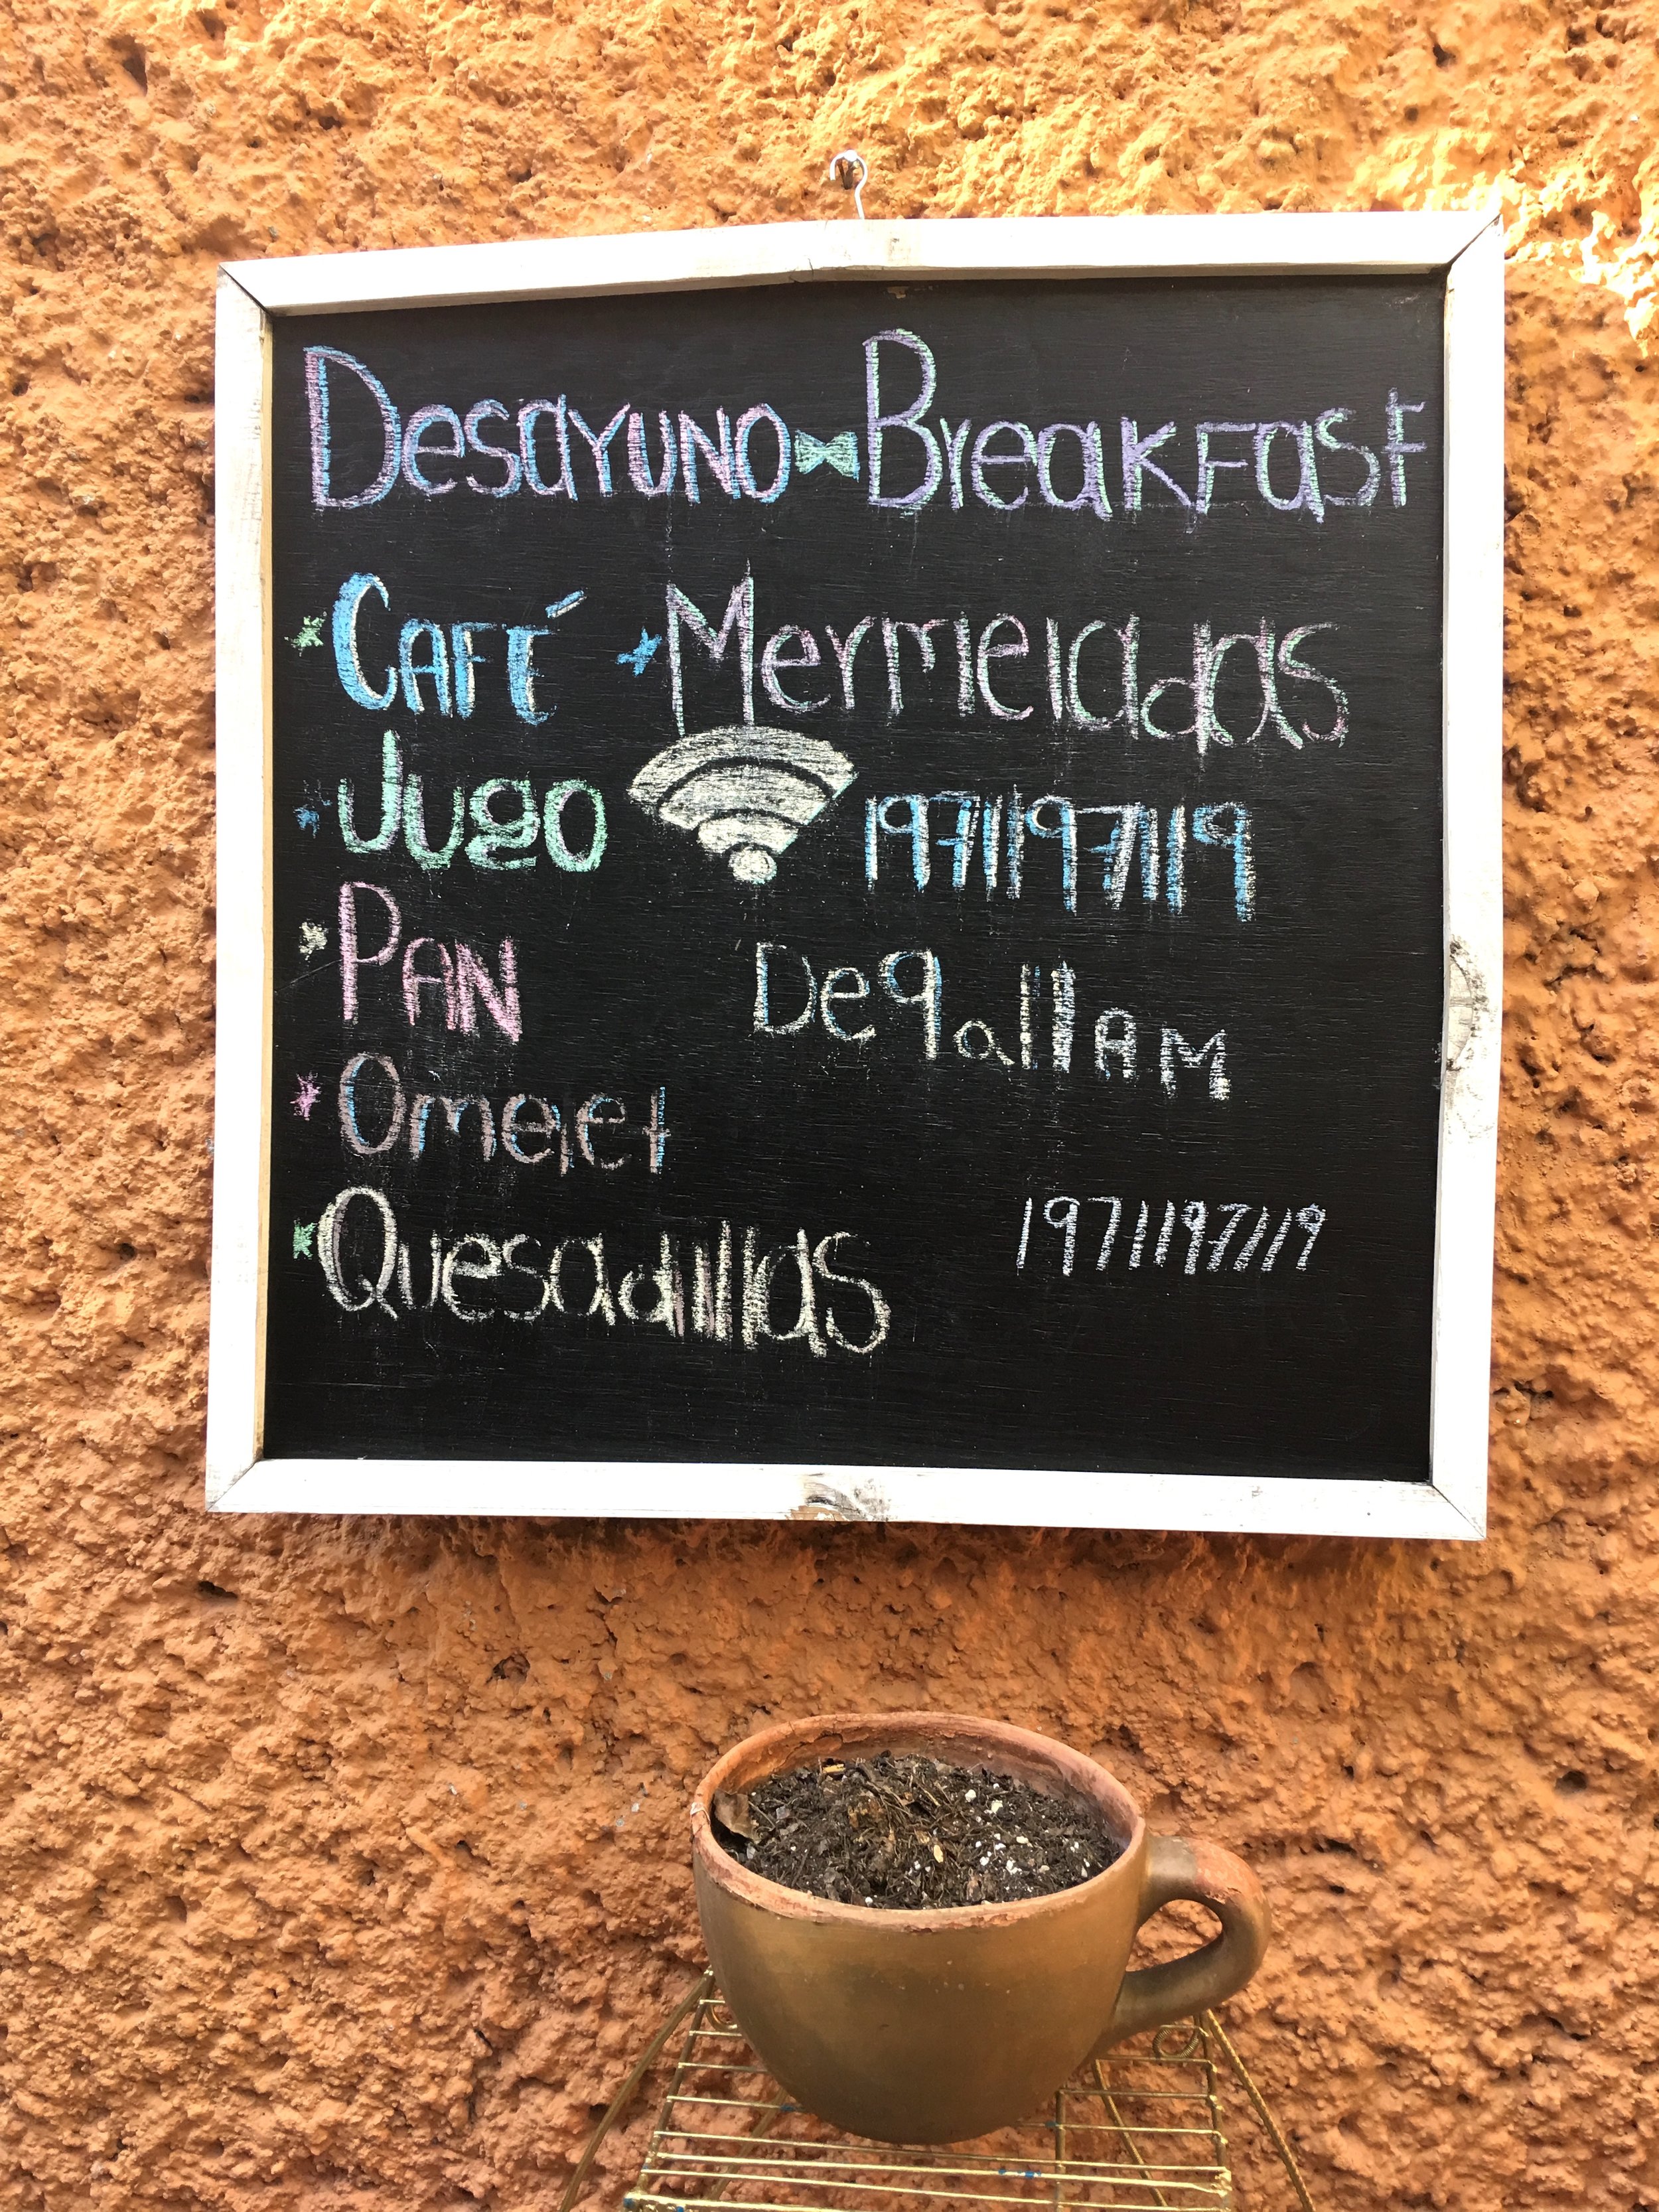 Desayuno Breakfast
Café Mermeladas
Jugo 19711971119
Pan De 9 a 11 AM
Omelet
Quesadillas 19711971119